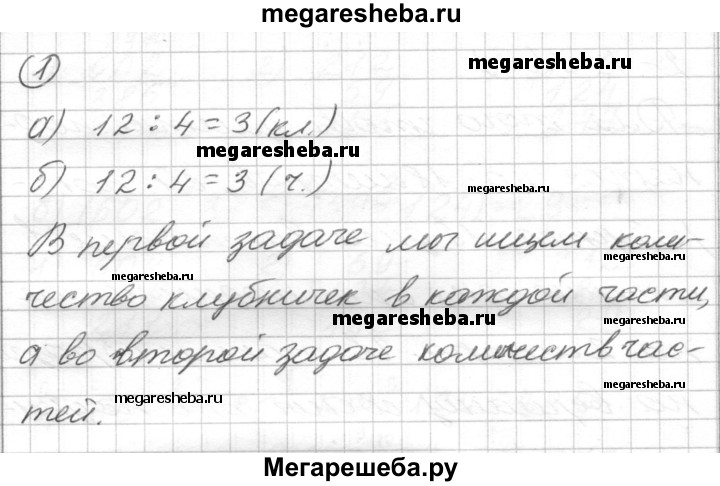 megaresheba.ru
①
megaresheba.ru
а) 12 : 4 = 3 (кл.)
megaresheba.ru
б) 12 : 4 = 3 (ч.)
megaresheba.ru
В первой задаче мы ищем коли-
megaresheba.ru
megaresheba.ru
чество клубничек в каждой части,
megaresheba.ru
а во второй задаче количеств час-
megaresheba.ru
тей.
megaresheba.ru
Мегарешеба.ру